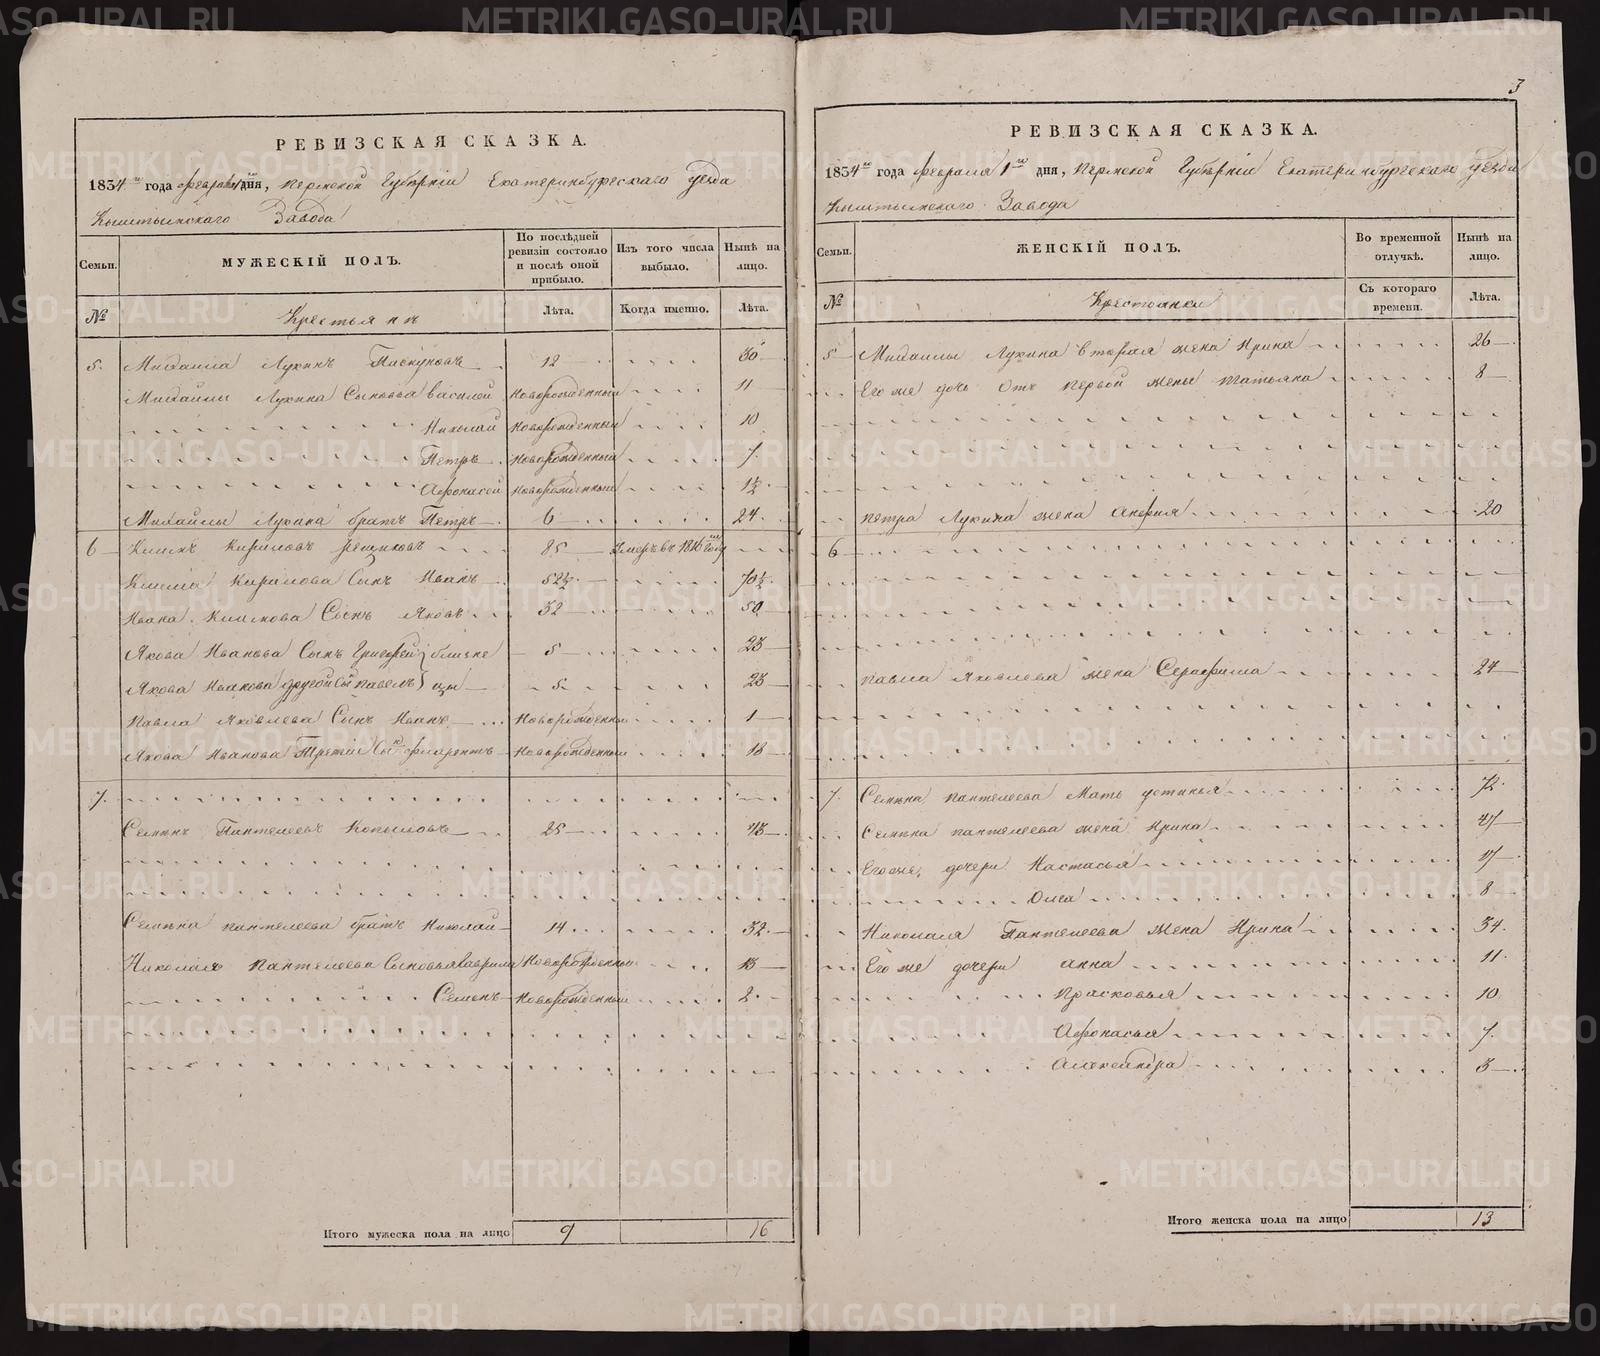 3
РЕВИЗСКАЯ СКАЗКА.
1834 го года февраля 1 дня, Пермской Губерніи Екатеринбургскаго уезда
Кыштымскаго Завода
Семьи. МУЖЕСКІЙ ПОЛЪ. По послѣдней ревизіи состояло и послѣ оной прибыло. Изъ того числа выбыло. Нынѣ на лицо.
№ Крестьянъ Лѣта. Когда именно. Лѣта.
5. Михаила Лукинъ Пискуновъ 12 30
Михаилы Лукина Сыновья василей Новорожденный 11
Николай Новорожденный 10
Петръ Новорожденный 7
Афонасей Новорожденный 1½
Михаилы Лукина братъ Петръ 6 24
6 Климъ Кириловъ 85 Умеръ в 1816 году
Клима Кирилова Сынъ Иванъ 52½ 70½
Ивана Климова Сынъ Яковъ 32 50
Якова Иванова Сынъ Григорей близне 5 23
Якова Иванова другой Сынъ павелъ цы 5 23
Павла Яковлева Сынъ Иванъ Новорожденный 1
Якова Иванова Третій Сынъ Новорожденный 18
7.
Семенъ Пантелеевъ Копыловъ 25 43
Семена пантелеева братъ Николай 14 32
Николая Пантелеева Сыновья Гаврила Новорожденный 13
Семенъ Новорожденный 2
Итого мужеска пола на лицо 9 16
РЕВИЗСКАЯ СКАЗКА.
1834 го года февраля 1 го дня, Пермской Губерніи Екатеринбургскаго уезда
Кыштымскаго Завода
Семьи. ЖЕНСКІЙ ПОЛЪ. Во временной отлучкѣ. Нынѣ на лицо.
№ Крестьянки Съ котораго времени. Лѣта.
5 Михаилы Лукина вторая жена Ирина 26
Его же дочь отъ первой жены татьяна 8
петра Лукина жена 20
6
павла Яковлева жена Серафима 24
7 Семена пантелеева Мать устинья 72
Семена пантелеева жена Ирина 47
Его же, дочери Настасья 17
Олга 8
Николая Пантелеева жена Ирина 34
Его же дочери анна 11
прасковья 10
Афонасья 7
Александра 3
Итого женска пола на лицо 13
METRIKI.GASO-URAL.RU